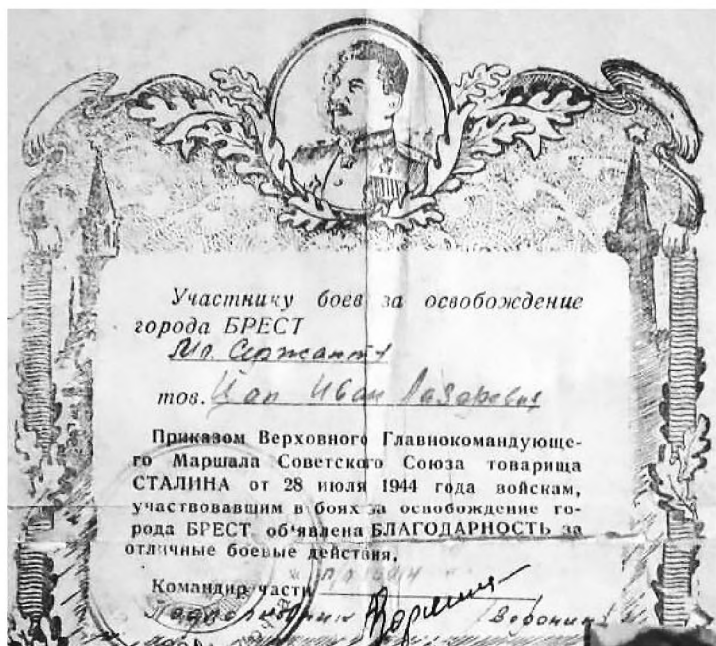 Участнику боев за освобождение
города БРЕСТ
Мл. Сержант
тов. Цап Иван Лазаревич
Приказом Верховного Главнокомандующе-
го Маршала Советского Союза товарища
СТАЛИНА от 28 июля 1944 года войскам,
участвовавшим в боях за освобождение го-
рода БРЕСТ, об'явлена БЛАГОДАРНОСТЬ за
отличные боевые действия.
Командир части
Воронин